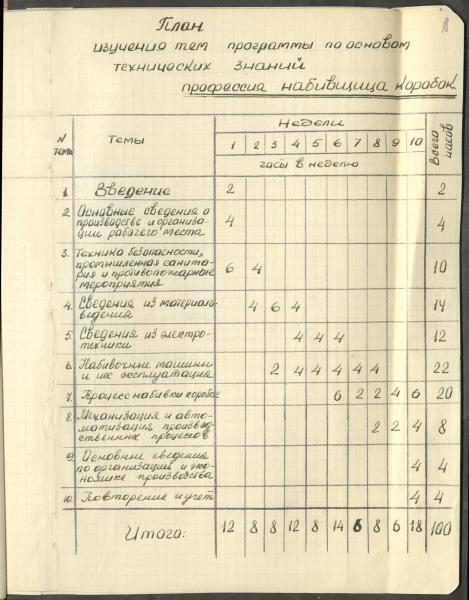 План
изучения тем программы по основам
технических знаний
профессия набивщица коробок.
N темы Темы Недели Всего часов
1 2 3 4 5 6 7 8 9 10
часы в неделю
1 Введение 2 2
2. Основные сведения о
производстве и организа-
ции рабочего места 4 4
3. Техника безопасности,
промышленная санита-
рия и противопожарные
мероприятия 6 4 10
4. Сведения из материало-
ведения 4 6 4 14
5. Сведения из электро-
техники 4 4 4 12
6. Набивочные машины
и их эксплуатация 2 4 4 4 4 4 22
7. Процесс набивки коробок 6 2 2 4 6 20
8. Механизация и авто-
матизация производ-
ственных процессов 2 2 4 8
9. Основные сведения
по организации и эко-
номике производства 4 4
10. Повторение и учет 4 4
Итого: 12 8 8 12 8 14 6 8 6 18 100